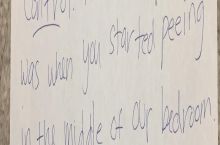 control.
was when you started peeing
in the middle of our bedroom.